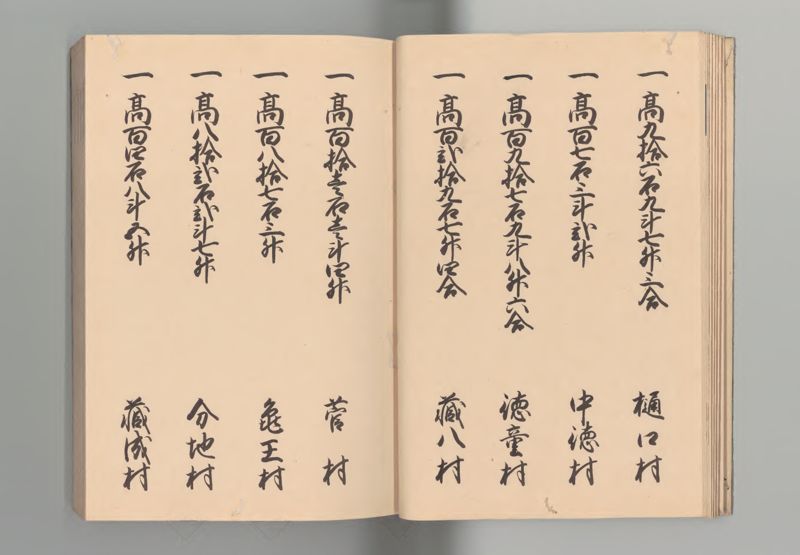 一高九拾六石九斗七升三合 樋口村
一高百七石三斗弐升 中徳村
一高百九拾七石九斗八升六合 徳童村
一高百弐拾九石七升四合 蔵八村
一高百拾壱石壱斗四升 菅村
一高百八拾七石三升 亀王村
一高八拾弐石弐斗七升 分地村
一高百四石八斗五升 蔵成村